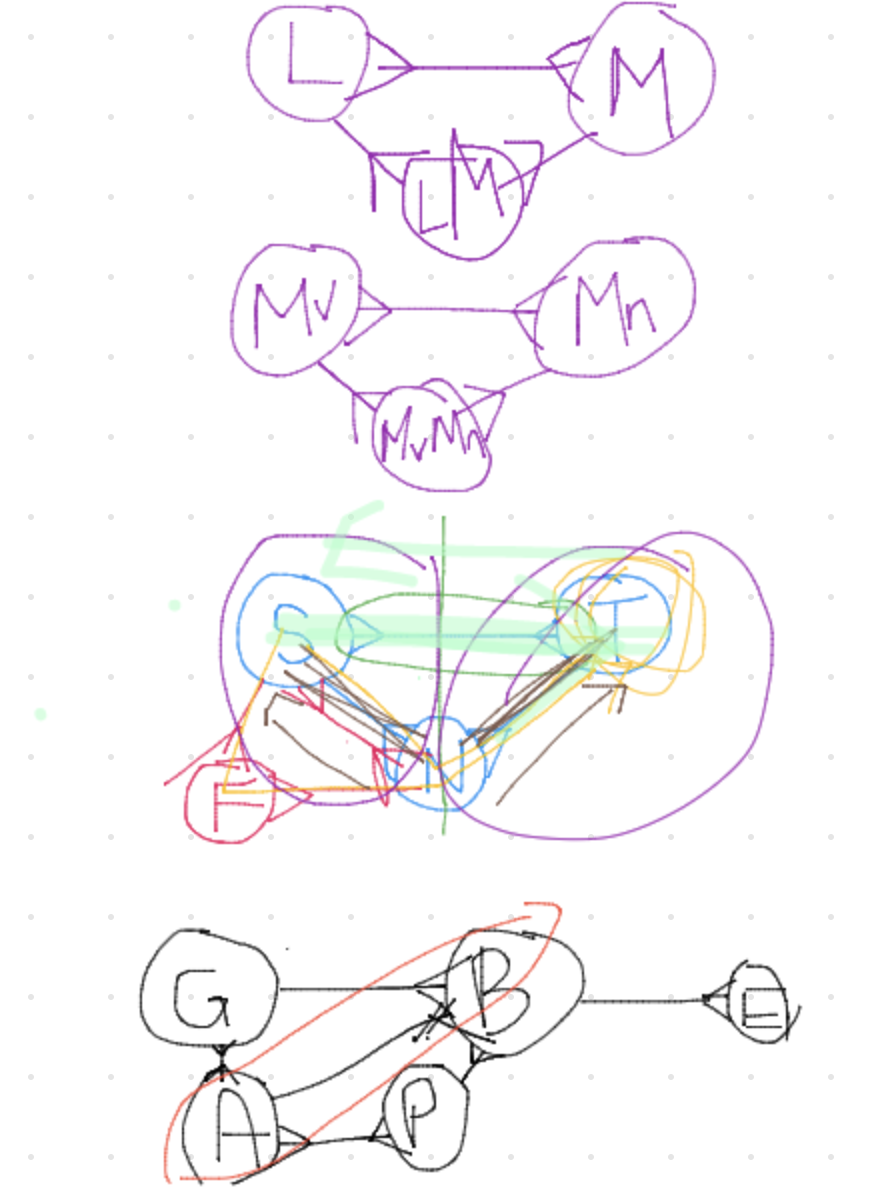 L M
LM
Mv Mn
MvMn
S T
F N
G B E
A P